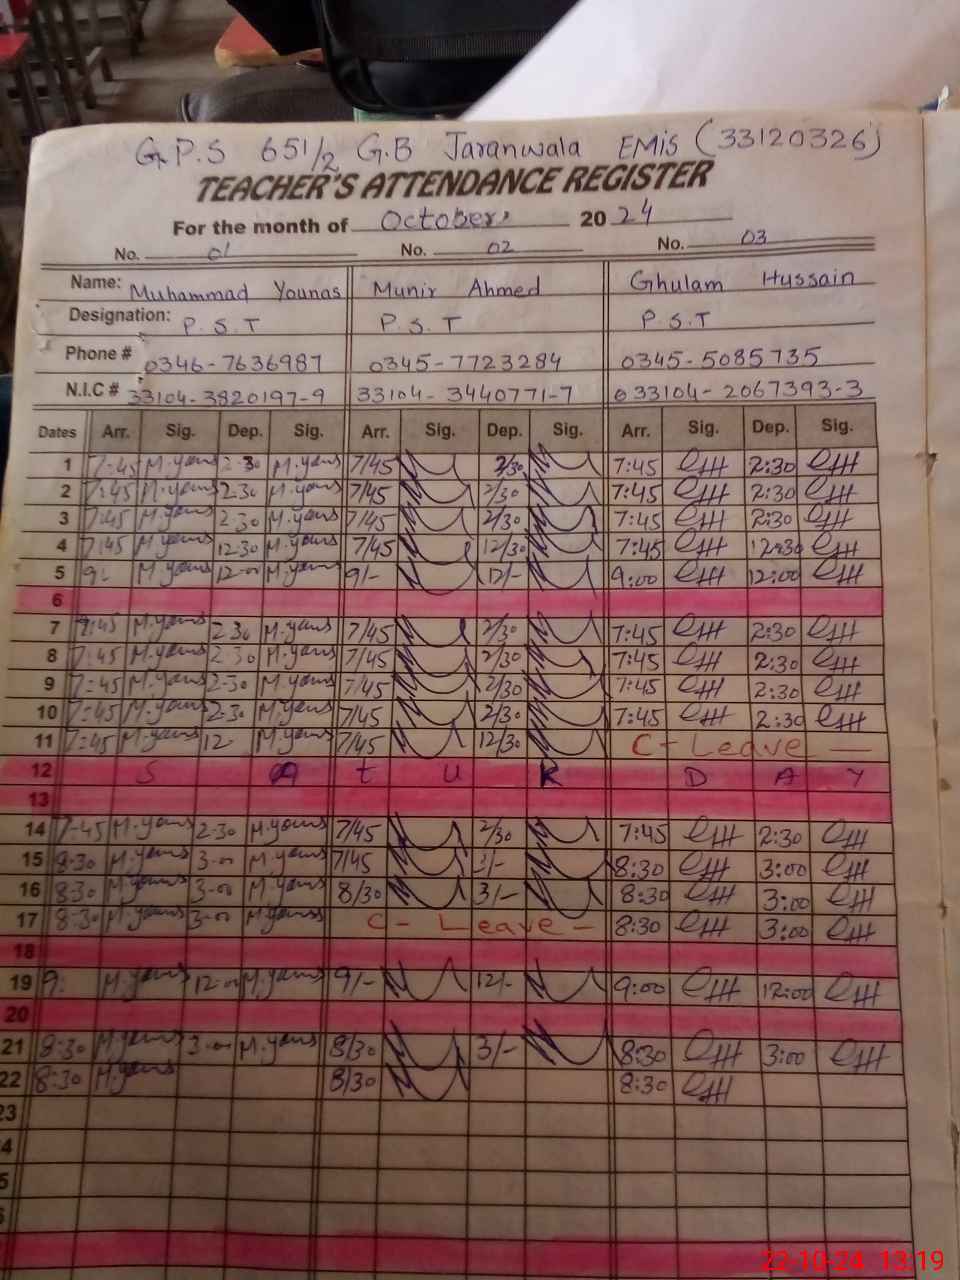 G.P.S 651/2 G.B Jaranwala EMIS (33120326)
TEACHER'S ATTENDANCE REGISTER
For the month of October, 2024
No. 01 No. 02 No. 03
Name: Muhammad Younas Munir Ahmed Ghulam Hussain
Designation: P.S.T P.S.T P.S.T
Phone # 0346-7636987 0345-7723284 0345-5085735
N.I.C # 33104-3820197-9 33104-3440771-7 33104-2067393-3
Dates Arr. Sig. Dep. Sig. Arr. Sig. Dep. Sig. Arr. Sig. Dep. Sig.
1 7-45 M.yons 2-30 M.yons 7/45 2/30 7:45 2:30
2 7:45 M.yons 2-30 M.yons 7/45 2/30 7:45 2:30
3 7:45 M.yons 2-30 M.yons 7/45 2/30 7:45 2:30
4 7:45 M.yons 12-30 M.yons 7/45 12/30 7:45 12:30
5 9: M.yons 12-00 M.yons 9/- 12/- 9:00 12:00
6
7 7:45 M.yons 2-30 M.yons 7/45 2/30 7:45 2:30
8 7:45 M.yons 2-30 M.yons 7/45 2/30 7:45 2:30
9 7:45 M.yons 2-30 M.yons 7/45 2/30 7:45 2:30
10 7:45 M.yons 2-30 M.yons 7/45 2/30 7:45 2:30
11 7:45 M.yons 12 M.yons 7/45 12/30 C-Leave —
12 S A t U R D A Y
13
14 7-45 M.yons 2-30 M.yons 7/45 2/30 7:45 2:30
15 8-30 M.yons 3-00 M.yons 7/45 3/- 8:30 3:00
16 8-30 M.yons 3-00 M.yons 8/30 3/- 8:30 3:00
17 8-30 M.yons 3-00 M.yons C - Leave - 8:30 3:00
18
19 9: M.yons 12-00 M.yons 9/- 12/- 9:00 12:00
20
21 8:30 M.yons 3-00 M.yons 8/30 3/- 8:30 3:00
22 8:30 M.yons 8/30 8:30
23
4
5
6
22-10-24 13:19